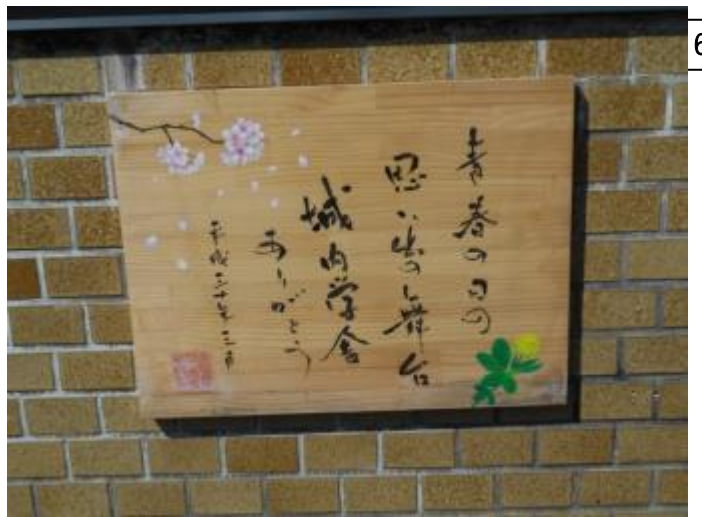 青春の日の
思い出の舞台
城内学舎
ありがとう
平成三十年三月
6